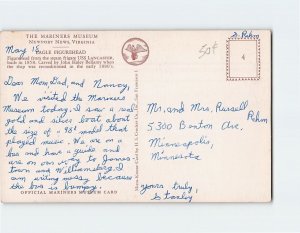 THE MARINERS MUSEUM
NEWPORT NEWS, VIRGINIA
EAGLE FIGUREHEAD
Figurehead from the steam frigate USS LANCASTER,
built in 1858. Carved by John Haley Bellamy when
the ship was recommissioned in the early 1880's.
May 18
Dear Mom, Dad, and Nancy,
We visited the Mariners
Museum today. I saw a real
gold and silver boat about
the size of a model that
played music. We are on a
bus and have a guide and
are on our way to James-
town and Williamsburg. I
am writing messy because
the bus is bumpy.
OFFICIAL MARINERS MUSEUM CARD
S. Rehm
50¢
4
Mr. and Mrs. Russell
Rehm
5300 Benton Ave,
Minneapolis,
Minnesota
Yours truly,
Stanley